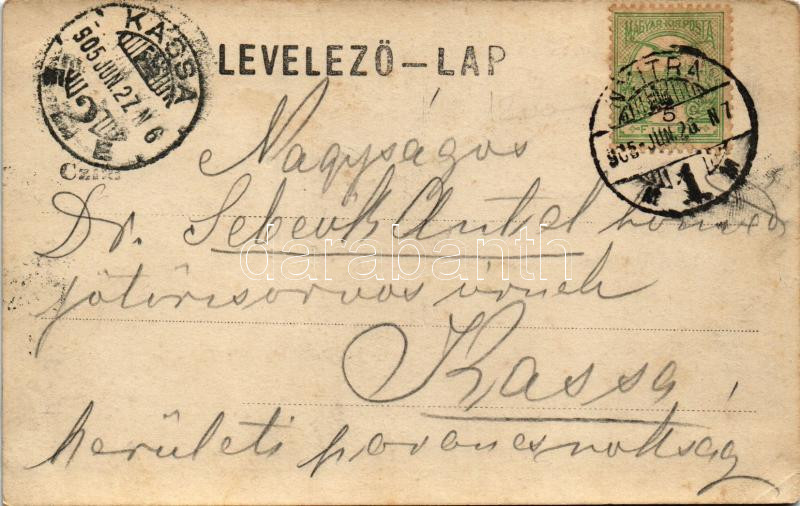 KASSA
905 JUN. 27. N 6
LEVELEZŐ–LAP
MAGYAR KIR. POSTA
NYITRA
5
905 JUN. 26 N 7
1
Czím
Nagyságos
Dr. Sebeök Antal honvéd
darabanth
főtörzsorvos úrnak
Kassa
kerületi parancsnokság